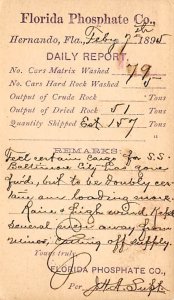 Florida Phosphate Co.,
Hernando, Fla., Feby 7th 1895
DAILY REPORT.
No. Cars Matrix Washed 79
No. Cars Hard Rock Washed
Output of Crude Rock Tons
Output of Dried Rock 51 Tons
Quantity Shipped Est 157 Tons
REMARKS
Feel certain Cargo for S.S.
Baltimore City has gone
fwd., but to be doubly certain
am loading more.
Rain & high wind Kept
several men away from
mines, cutting off supply.
Yours truly,
FLORIDA PHOSPHATE CO.,
Per Supt.